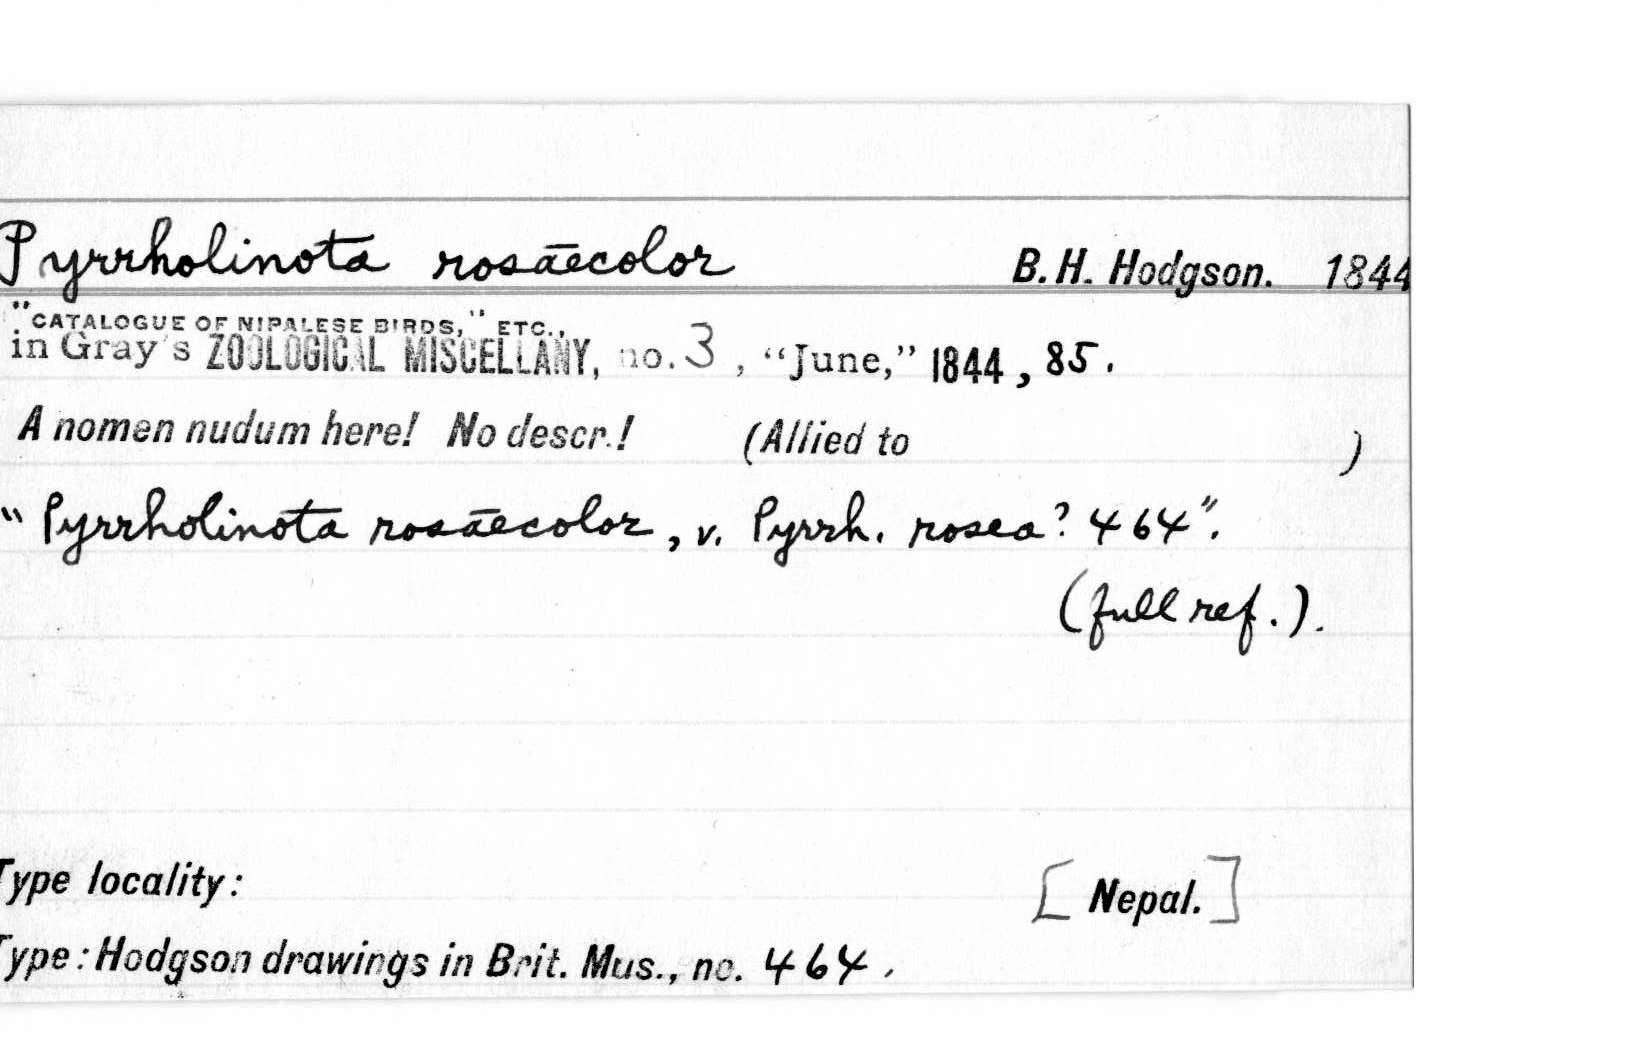 Pyrrholinota rosāecolor B.H. Hodgson. 1844
"CATALOGUE OF NIPALESE BIRDS," ETC.,
in Gray's ZOOLOGICAL MISCELLANY, no. 3, "June," 1844, 85.
A nomen nudum here! No descr.! (Allied to )
"Pyrrholinota rosāecolor, v. Pyrrh. rosea? 464".
(full ref.).
Type locality: [Nepal.]
Type: Hodgson drawings in Brit. Mus., no. 464.